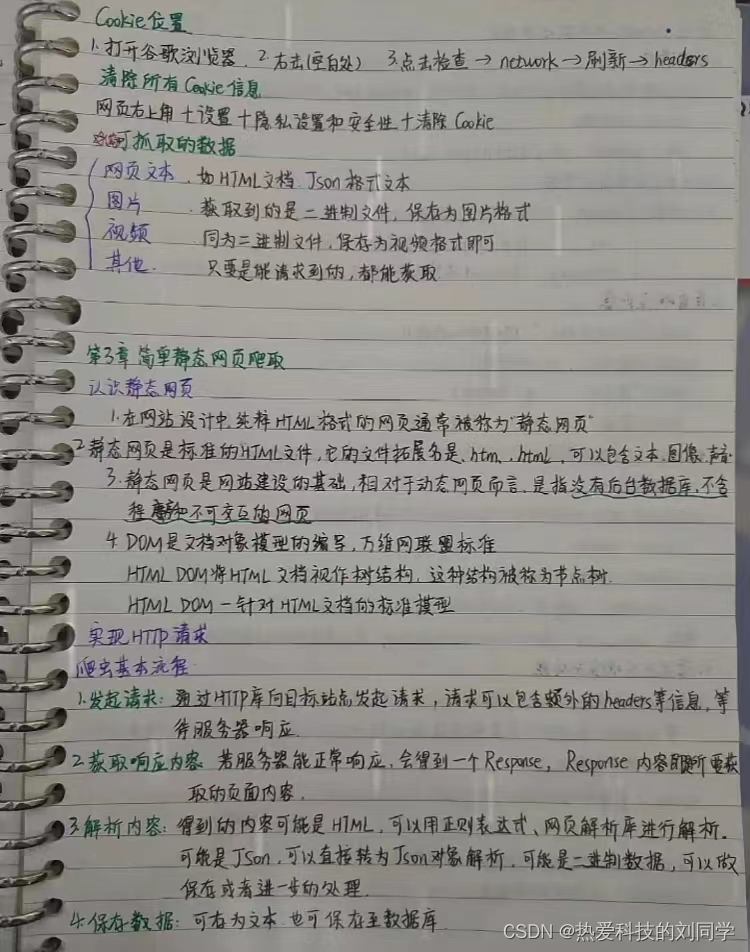 Cookie位置
1.打开谷歌浏览器 2.右击(空白处) 3.点击检查→network→刷新→headers
清除所有Cookie信息
网页右上角+设置+隐私设置和安全性+清除Cookie
可抓取的数据
网页文本 、如HTML文档、Json格式文本
图片 获取到的是二进制文件,保存为图片格式
视频 同为二进制文件,保存为视频格式即可
其他. 只要是能请求到的,都能获取
第3章 简单静态网页爬取
认识静态网页
1.在网站设计中,纯粹HTML格式的网页通常被称为"静态网页"
2.静态网页是标准的HTML文件,它的文件拓展名是.htm、.html,可以包含文本、图像、声音
3.静态网页是网站建设的基础,相对于动态网页而言,是指没有后台数据库、不含
程序和不可交互的网页
4.DOM是文档对象模型的缩写,万维网联盟标准
HTML DOM将HTML文档视作树结构,这种结构被称为节点树.
HTML DOM一针对HTML文档的标准模型
实现HTTP请求
爬虫基本流程
1.发起请求:通过HTTP库向目标站点发起请求,请求可以包含额外的headers等信息,等
待服务器响应.
2.获取响应内容:若服务器能正常响应,会得到一个Response,Response内容即是所要获
取的页面内容.
3.解析内容:得到的内容可能是HTML,可以用正则表达式、网页解析库进行解析.
可能是Json,可以直接转为Json对象解析,可能是二进制数据,可以做
保存或者进一步的处理.
4.保存数据:可存为文本,也可保存至数据库
CSDN @热爱科技的刘同学